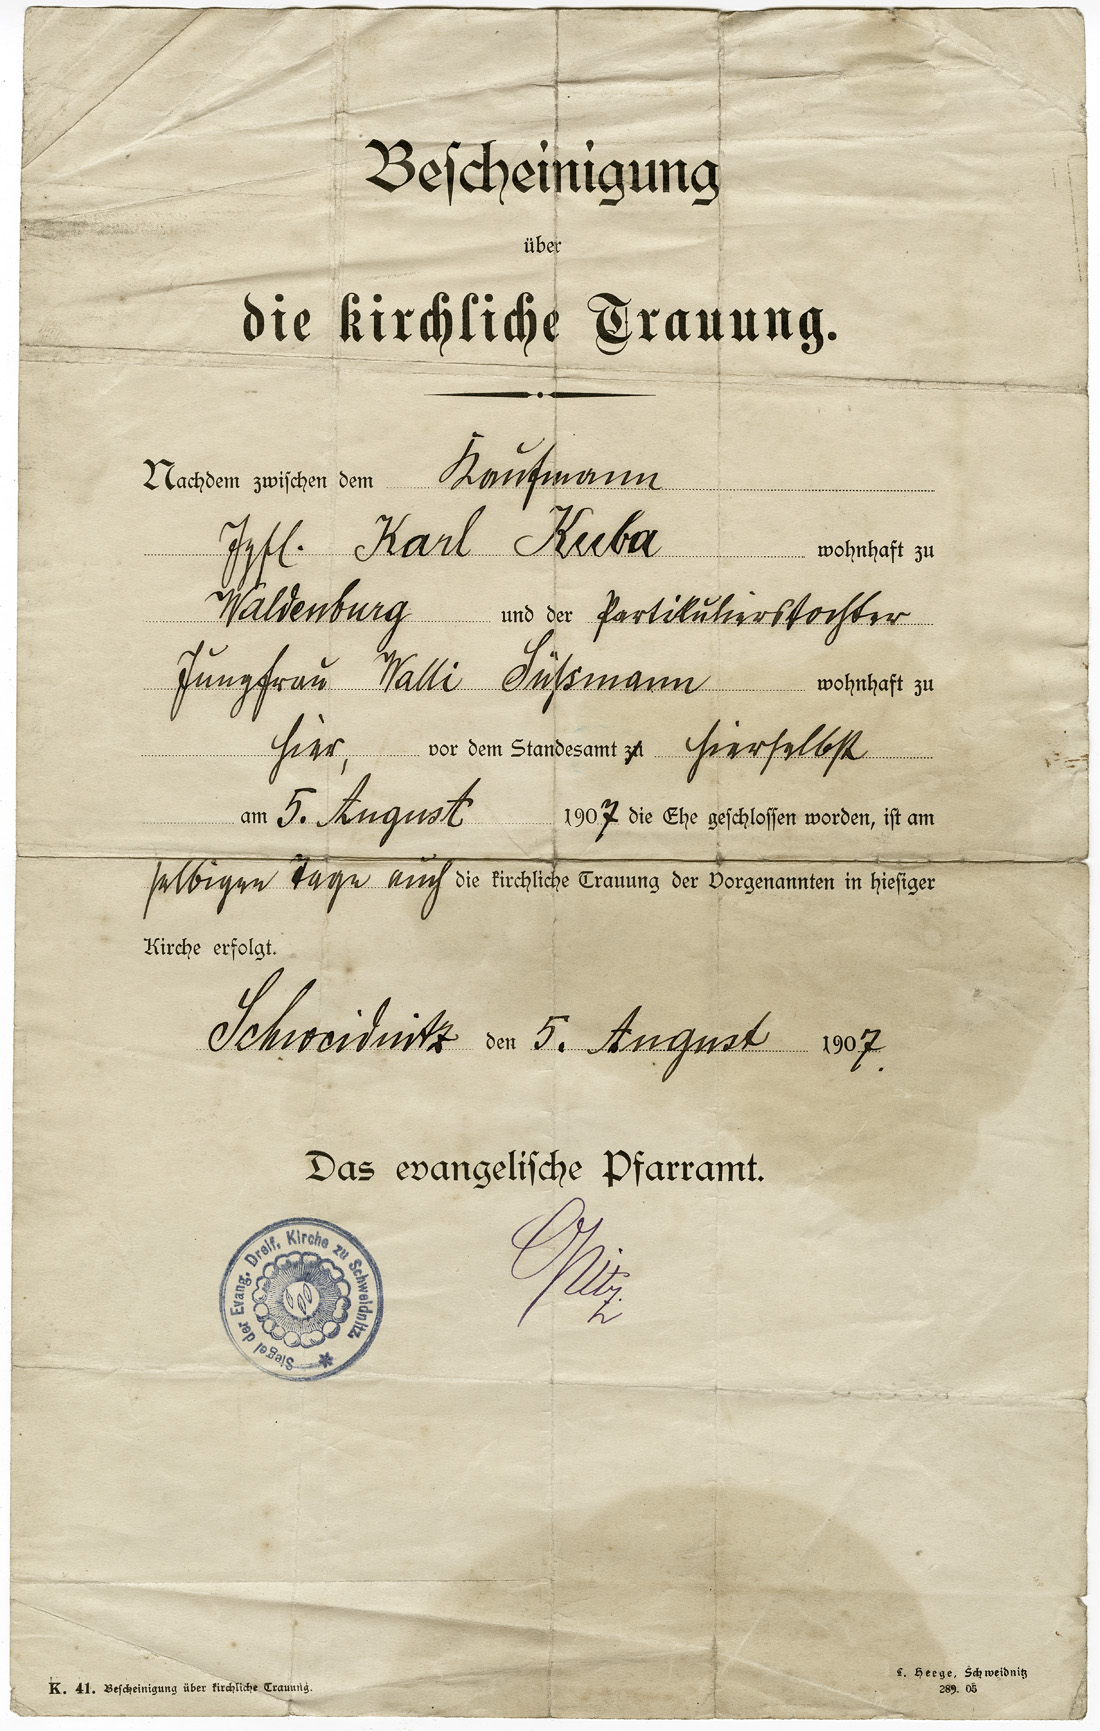 Bescheinigung
über
die kirchliche Trauung.
Nachdem zwischen dem Kaufmann
Jgfl. Karl Kuba wohnhaft zu
Waldenburg und der Partikulierstochter
Jungfrau Walli Süßmann wohnhaft zu
hier, vor dem Standesamt zu hierselbst
am 5. August 1907 die Ehe geschlossen worden, ist am
selbigen Tage auch die kirchliche Trauung der Vorgenannten in hiesiger
Kirche erfolgt.
Schweidnitz den 5. August 1907.
Das evangelische Pfarramt.
Siegel der Evang. Dreif. Kirche zu Schweidnitz.
K. 41. Bescheinigung über kirchliche Trauung.
L. Heege, Schweidnitz
289. 05